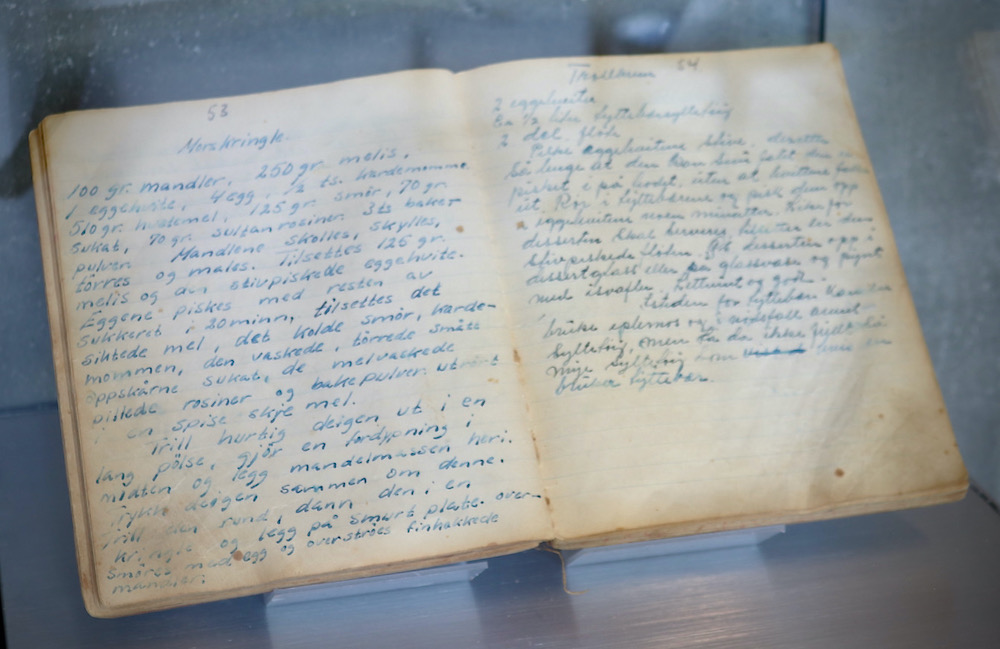 53
Norskringle
100 gr. mandler, 250 gr melis,
1 eggehvite, 4 egg, 1/2 ts. kardemomme
510 gr. hvetemel, 125 gr. smör, 70 gr
sukat, 70 gr. sultanrosiner 3 ts bake-
pulver. Mandlene skolles, skylles,
törres og males. Tilsettes 125 gr.
melis og den stivpiskede eggehvite.
Eggene piskes med resten av
sukkeret i 20 minn, tilsettes det
siktede mel, det kolde smör, karde-
mommen, den vaskede, törrede smått
oppskårne sukat, de melvaskede
pillede rosiner og bakepulver
i en spise skje mel.
Trill hurtig deigen ut i en
lang pölse, gjör en fordypning i
midten og legg mandelmassen heri.
Trykk deigen sammen om denne.
Trill den rund, dann den i en
kringle og legg på smurt plate. over-
smöres med egg og overströes finhakkede
mandler.
54
Trollkrem
2 eggehviter
Ca 1/2 liter tyttebærsyltetöy
2 del. flöte
Piske eggehvitene stive. deretter
så lenge at den kan snu fatet
pisket i på hodet, uten at hvittene faller
ut. Rör i tyttebærene og pisk dem opp
i eggehvitene noen minutter. Like för
desserten skal serveres, has
stivpiskede flöten. Ös desserten opp i
dessertglass eller glassvaser og pynt
med isvafler. Lettvint og godt.
Isteden for tyttebær kan en
bruke eplemos og i nödsfall annet
syltetöy, men ta da ikke fullt så
mye syltetöy som en
bruker tyttebær.